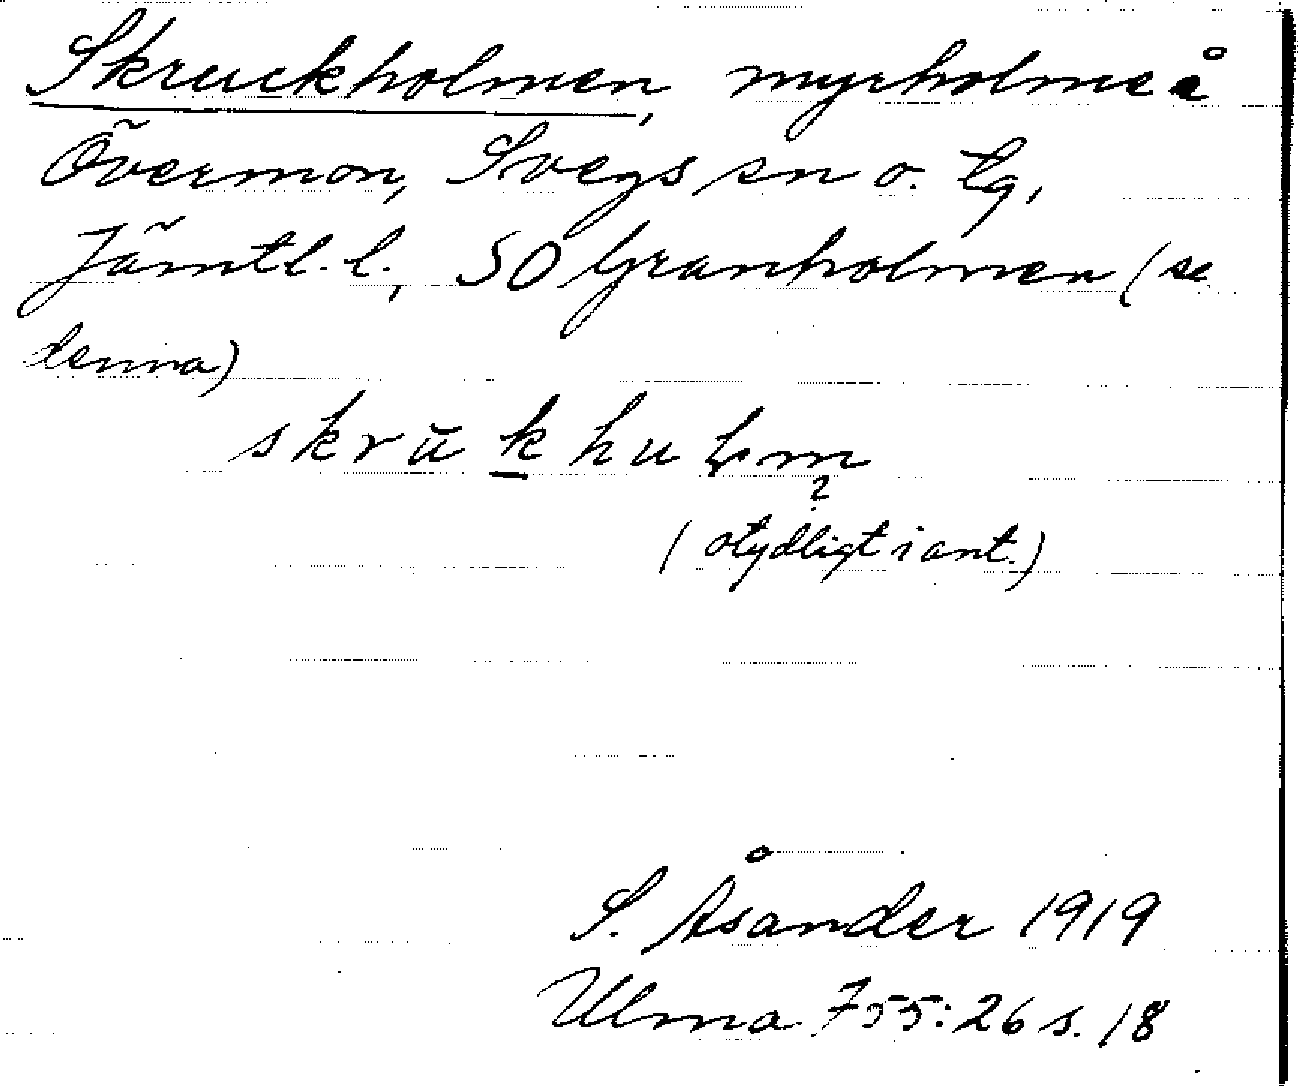 Skruckholmen, myrholme å
Övermon, Svegs sn o. tg,
Jämtl. l., SO Granholmen (se
denna)
skrŭkhuḷm
?
(otydligt i ant.)
S. Åsander 1919
Ulma 755:26 s. 18